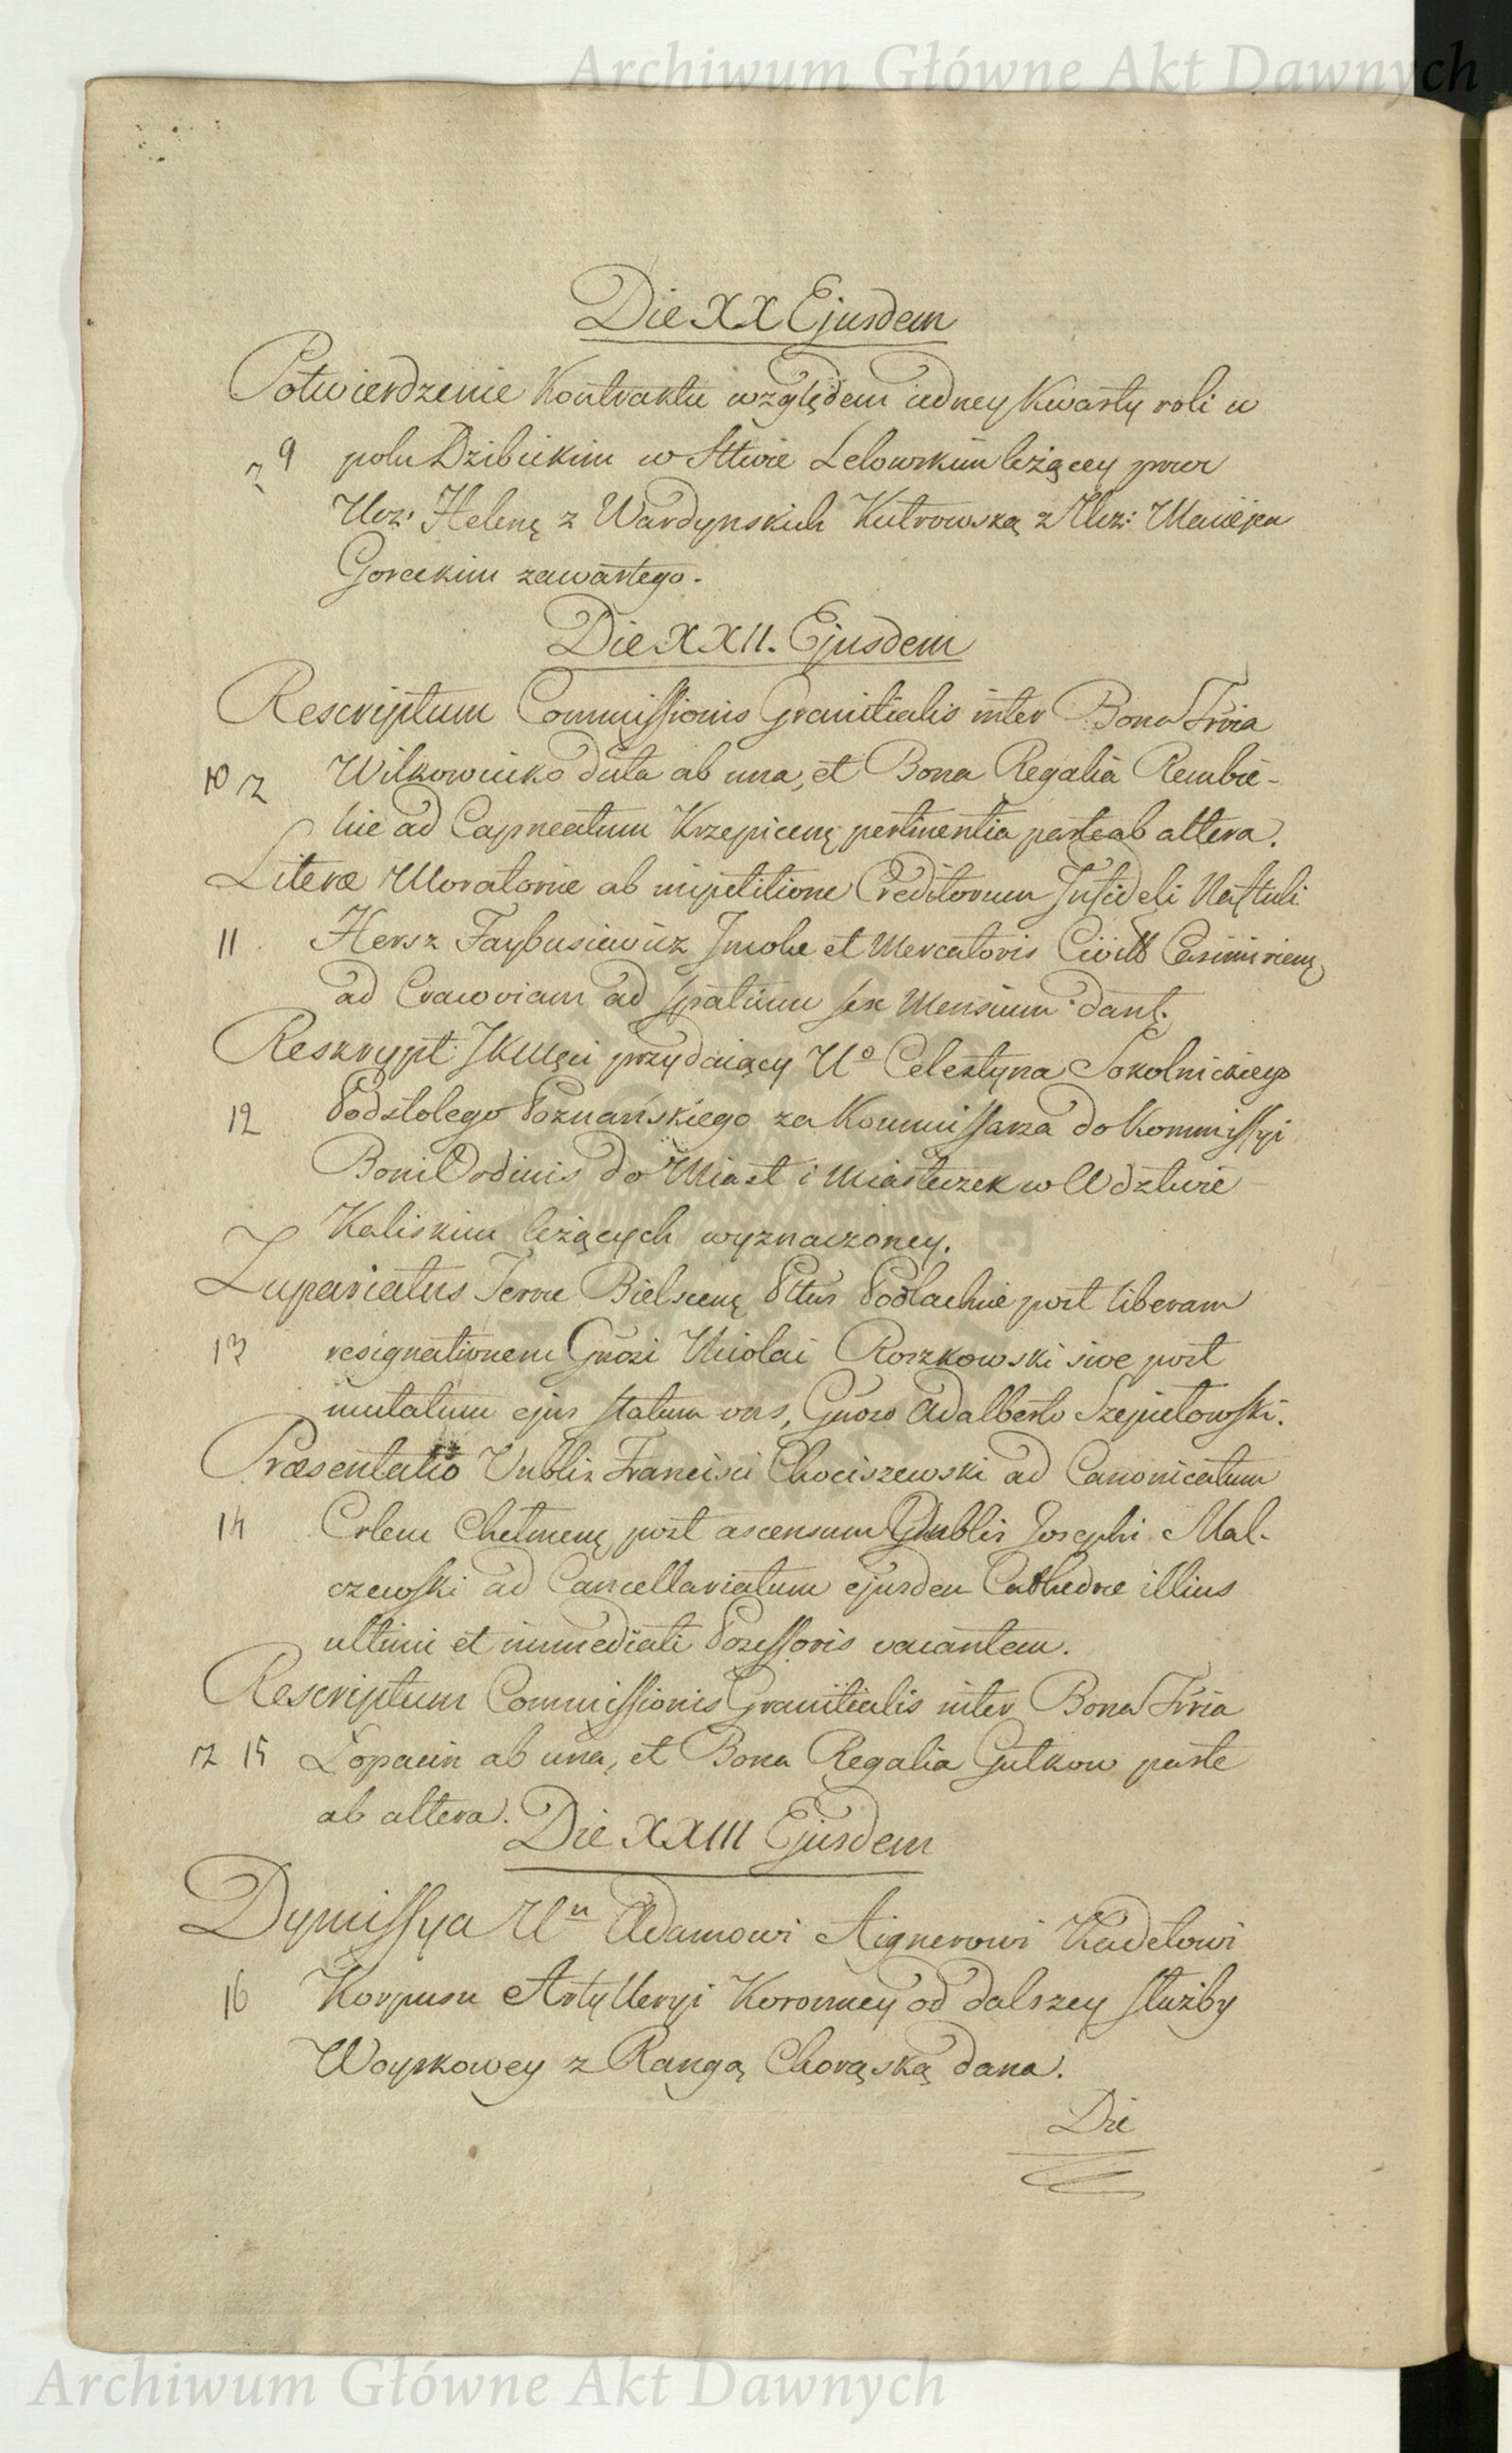 Archiwum Główne Akt Dawnych
Die XX Ejusdem
Potwierdzenie Kontraktu względem iedney Kwarty roli w
9 polu Dzibickim w Sttwie Lelowskim leżącey przez
Ucz: Helenę z Wardynskich Kutrowską z Ucz: Macieiem
Goreckim zawartego.
Die XXII. Ejusdem
Rescriptum Commissionis Granitialis inter Bona Trria
10 Wilkowiecko dicta ab una, et Bona Regalia Rembie-
lice ad Capneatum Krzepicen: pertinentia parte ab altera.
Literæ Moratoriæ ab impetitione Creditorum Infideli Naftuli
11 Hersz Faybusiewicz Incolæ et Mercatoris Civitt Casimirien:
ad Cracoviam ad spatium sex Mensium dant:
Reskrypt JKMści przydaiący Uo Celestyna Sokolnickiego
12 Podstolego Poznańskiego za Kommissarza do Kommissyi
Boni Ordinis do Miast i Miasteczek w Wdztwie
Kaliskim leżących wyznaczoney.
Zupariatus Terræ Bielscen: Pttus Podlachiæ post liberam
13 resignationem Gnosi Nicolai Roszkowski sive post
mutatum ejus statum vits, Gnoso Adalberto Szepietowski.
Præsentatio Vnblis Francisci Chociszewski ad Canonicatum
14 Crlem Chelmen: post ascensum Vnblis Josephi Mal-
czewski ad Cancellariatum ejusdem Cathedræ illius
ultimi et immediati Possessoris vacantem.
Rescriptum Commissionis Granitialis inter Bona Trria
15 Łopacin ab una, et Bona Regalia Gutkow parte
ab altera.
Die XXIII Ejusdem
Dymissya Un Adamowi Aignerowi Kadetowi
16 Korpusu Artylleryi Koronney od dalszey służby
Woyskowey z Rangą Chorąską dana.
Die
Archiwum Główne Akt Dawnych